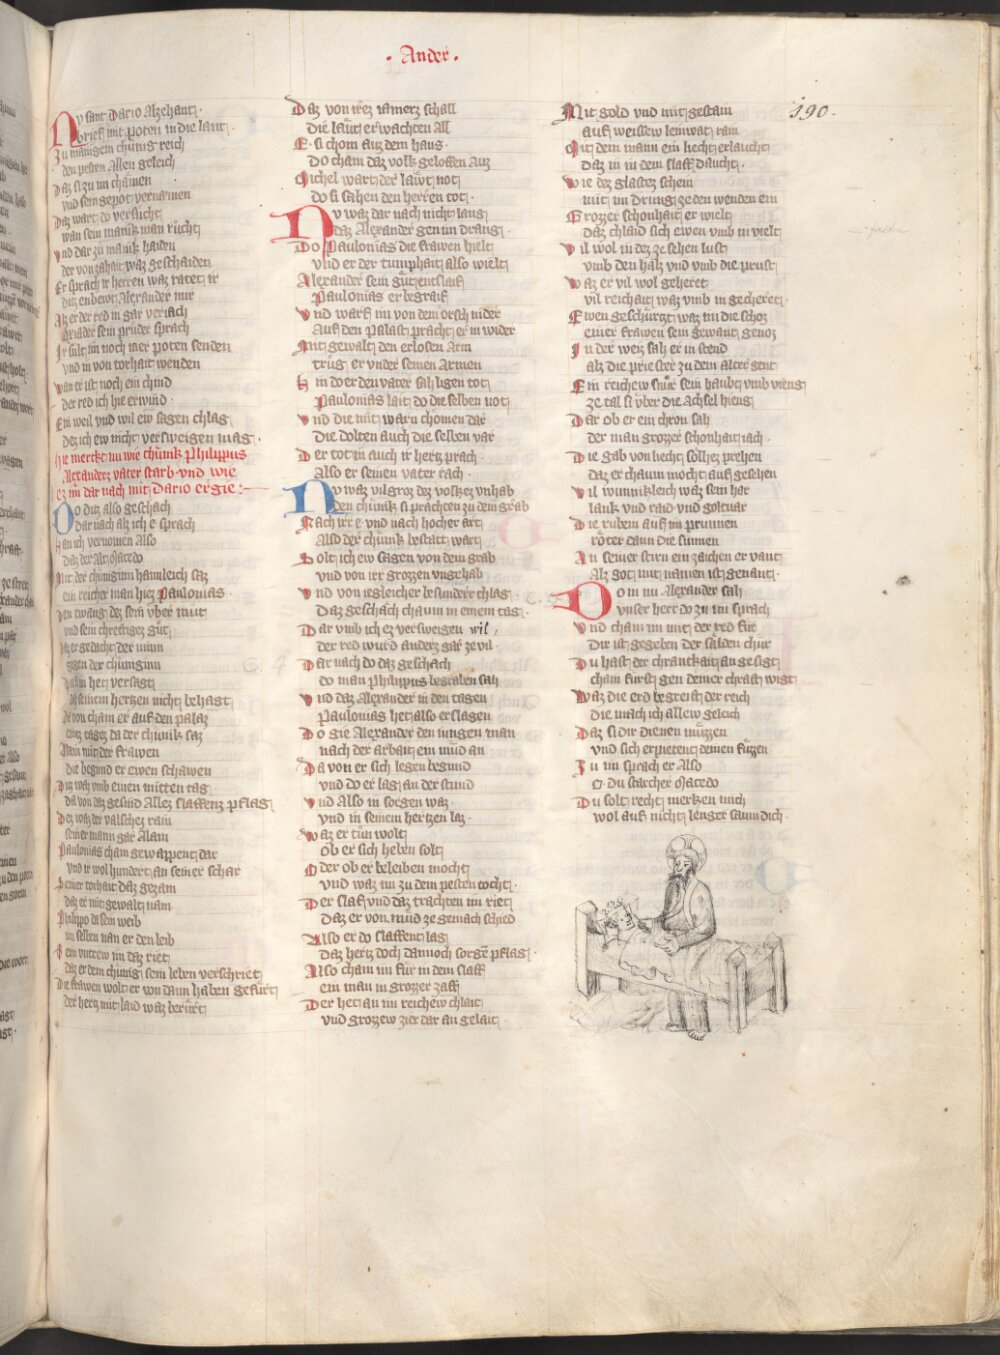 · Ander ·
190.
Nv sant Dario Alzehant ·
brief mit poten in die lant ·
Zu manigem chunig reich
den pesten Allen geleich
Daz si zu im chamen
vnd sein gepot vernamen
Daz wart do versucht
wan sein manik man rucht
vnd dar zu manik haiden
der von zahait waz geschaiden
Er sprach ir herren waz ratet ir
ditz enbewt Alexander mir
Alz er der red in gar veriach
Dar nach alz ich e sprach
Ir sult im noch mer poten senden
vnd in von torhait wenden
wan er ist noch ein chind
der red ich hie erwind
Ein weil vnd wil ew sagen chlag
dez ich ew nicht versweigen mag ·
hie merckt nu wie chunik Philippus
Alexanders vater starb · vnd wie
ez im dar nach mit Dario ergie :
Do ditz also geschach
Dar nach alz ich e sprach
han ich vernomen Also
daz der Alt Macedo
Mit der chuniginn haimleich saz
ein reicher man hiez Paulonias ·
den twang dez sein vber mut
vnd sein chreftigez gut
Daz er gedacht der minn
gegen der chuniginn
Diu im het versagt
in seinem hertzen nicht behagt
Da von cham er auf den palaz
eines tages da der chunik saz
Allein mit der frawen
die begund er ewen schawen
Ditz waz vmb einen mitten tag
da von daz gesind Allez slaffenz pflag
Dez waz der valschez rain
seiner mann gar Alain
Paulonias cham gewappent dar
vnd ir wol hundert an seiner schar
Seiner torhait daz gezam
daz er mit gewalt nam
Philippo da sein weib
im selben nam er den leib
Sein vntrew im daz riet
daz er dem chunig sein leben verschriet
Die frawen wolt er von dann haben gefurt
der hertz mit laid waz berurt
Daz von irez iamerz schall
die laut erwachten All
E · si chom auz dem haus ·
Do cham daz volk geloffen Auz
Michel wart der lawt not
do si sahen den herren tot ·
Nv waz dar nach nicht lang
daz Alexander gen im drang ·
Do Paulonias die frawen hielt
vnd er der tumphait also wielt
Alexander sein gut entslaif
Paulonias er begraif
vnd warf im von dem orsch nider
Auf den palast pracht er in wider
Mit gewalt den erlosen Arm
trug er vnder seinen Armen
Hin do er den vater sah ligen tot
Paulonias lait do die selben not
vnd die mit warn chomen dar
die dolten auch die selben var
Der tot in auch ir hertz prach ·
Also er seinen vater rach ·
Nv waz vil groz dez volkez vnhab
den chunik si prachten zu dem grab
Nach irr e vnd nach hocher art
Also der chunk bestatt wart
Solt ich ew sagen von dem grab
vnd von irr grozzen vngehab
vnd von iegleicher besunder chlag
Daz geschach chaum in einem tag ·
Dar vmb ich ez versweigen wil ,
der red wurd anderz gar ze vil ·
Dar nach do daz geschach
do man Philippus begraben sah
vnd daz Alexander in den tagen
Paulonias het also erslagen
Do gie Alexander den iungen man
nach der arbait ein mud an
Da von er sich legen begund
vnd do er lag an der stund
vnd Also in sorgen waz ·
vnd in seinem hertzen laz ·
waz er tun wolt
ob er sich heben solt
Oder ob er beleiben mocht
vnd waz im zu dem pesten tocht ·
Der slaf vnd daz trachten im riet
daz er von mud ze gemach schied
Also er do slaffent lag
daz hertz doch dannoch sorge pflag ·
Also cham im fur in dem slaff
ein man in grozzer zaff
Der het an im reichew chlait
vnd grozzew zier dar an gelait
Mit gold vnd mit gestain
auf weissew leinwat rain
Mit dem mann ein hecht erlaucht
daz in in dem slaff daucht ·
wie dez glastez schein
mit im drung ze den wenden ein
Grozer schonhait er wielt
daz chlaid sich ewen vmb in vielt
Vil wol in dez ze sehen lust
vmb den halz vnd vmb die prust
waz er vil wol geheret
vil reichait waz vmb in gecheret ·
Ewen geschurtzt waz im die schoz
einer frawen sein gewant genoz
In der weiz sah er in stend
alz die priester zu dem alter gent
Ein reichew snur sein haubt vmb vieng
ze tal si vber die Achsel hieng
Dar ob er ein chron sah
der man grozzer schonhait iach ·
Die gab von liecht solhez prehen
daz er chaum mocht auf gesehen
Vil wunnikleich waz sein har
lank vnd raid vnd goltuar
Die rubein auf im prunnen
roter dann die sunnen
An seiner stirn ein zaichen er vant
Alz got mit namen ist genant ·
Do in nu Alexander sah
vnser herr do zu im sprach
vnd cham im mit der red fur
Dir ist gegeben der sälden chur
Du hast der chrankait an gesigt
chain furst gen deiner chraft wigt
Waz die erd begreift der reich
die mach ich allew geleich
Daz si dir dienen muzzen
vnd sich erpietent deinen fuzzen
Zu im sprach er Also
O · Du starcher Macedo
Du solt recht merken mich
wol auf nicht lenger saum dich ·